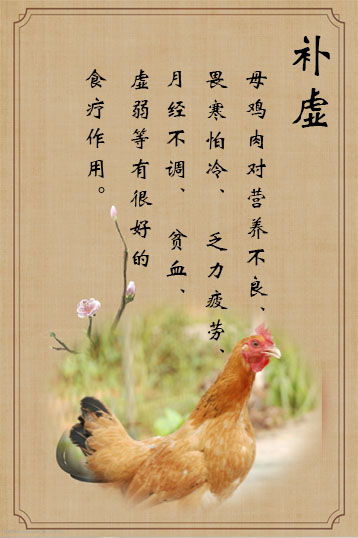 补虚
母鸡肉对营养不良、
畏寒怕冷、乏力疲劳、
月经不调、贫血、
虚弱等有很好的
食疗作用。